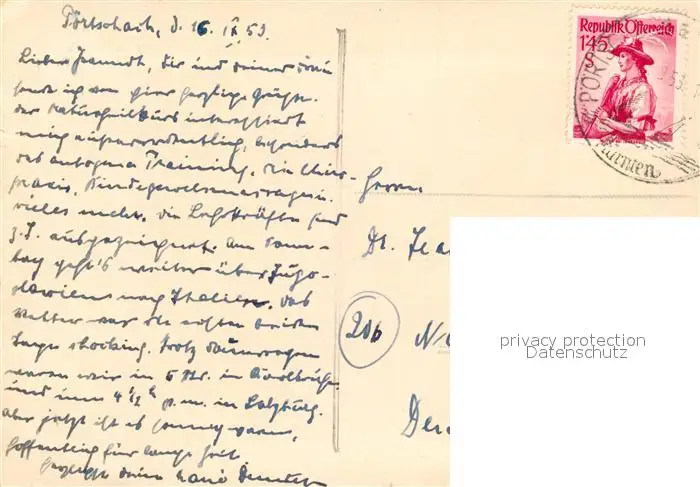 Pörtschach, d. 16. IX 53.
Lieber Freund, Dir und Deiner Frau
sende ich von hier herzliche Grüße.
Der Naturheilkurs interessiert
mich außerordentlich, besonders
das autogene Training, die Chiro-
praxis, Bindegewebsmassage u.
vieles mehr. Die Lehrkräfte sind
z. T. ausgezeichnet. Am Sonn-
tag geht's weiter über Jugo-
slawien nach Italien. Das
Wetter war die ersten beiden
Tage shocking. Trotz
waren wir in 5 Std. in
und um 4 1/2 h p.m. in Salzburg.
Aber jetzt ist es sonnig warm,
hoffentlich für lange Zeit.
Herzlichst Dein
Herrn
Dr.
20b
Republik Österreich
1'45
S
PÖRTS
53
Kärnten
privacy protection
Datenschutz